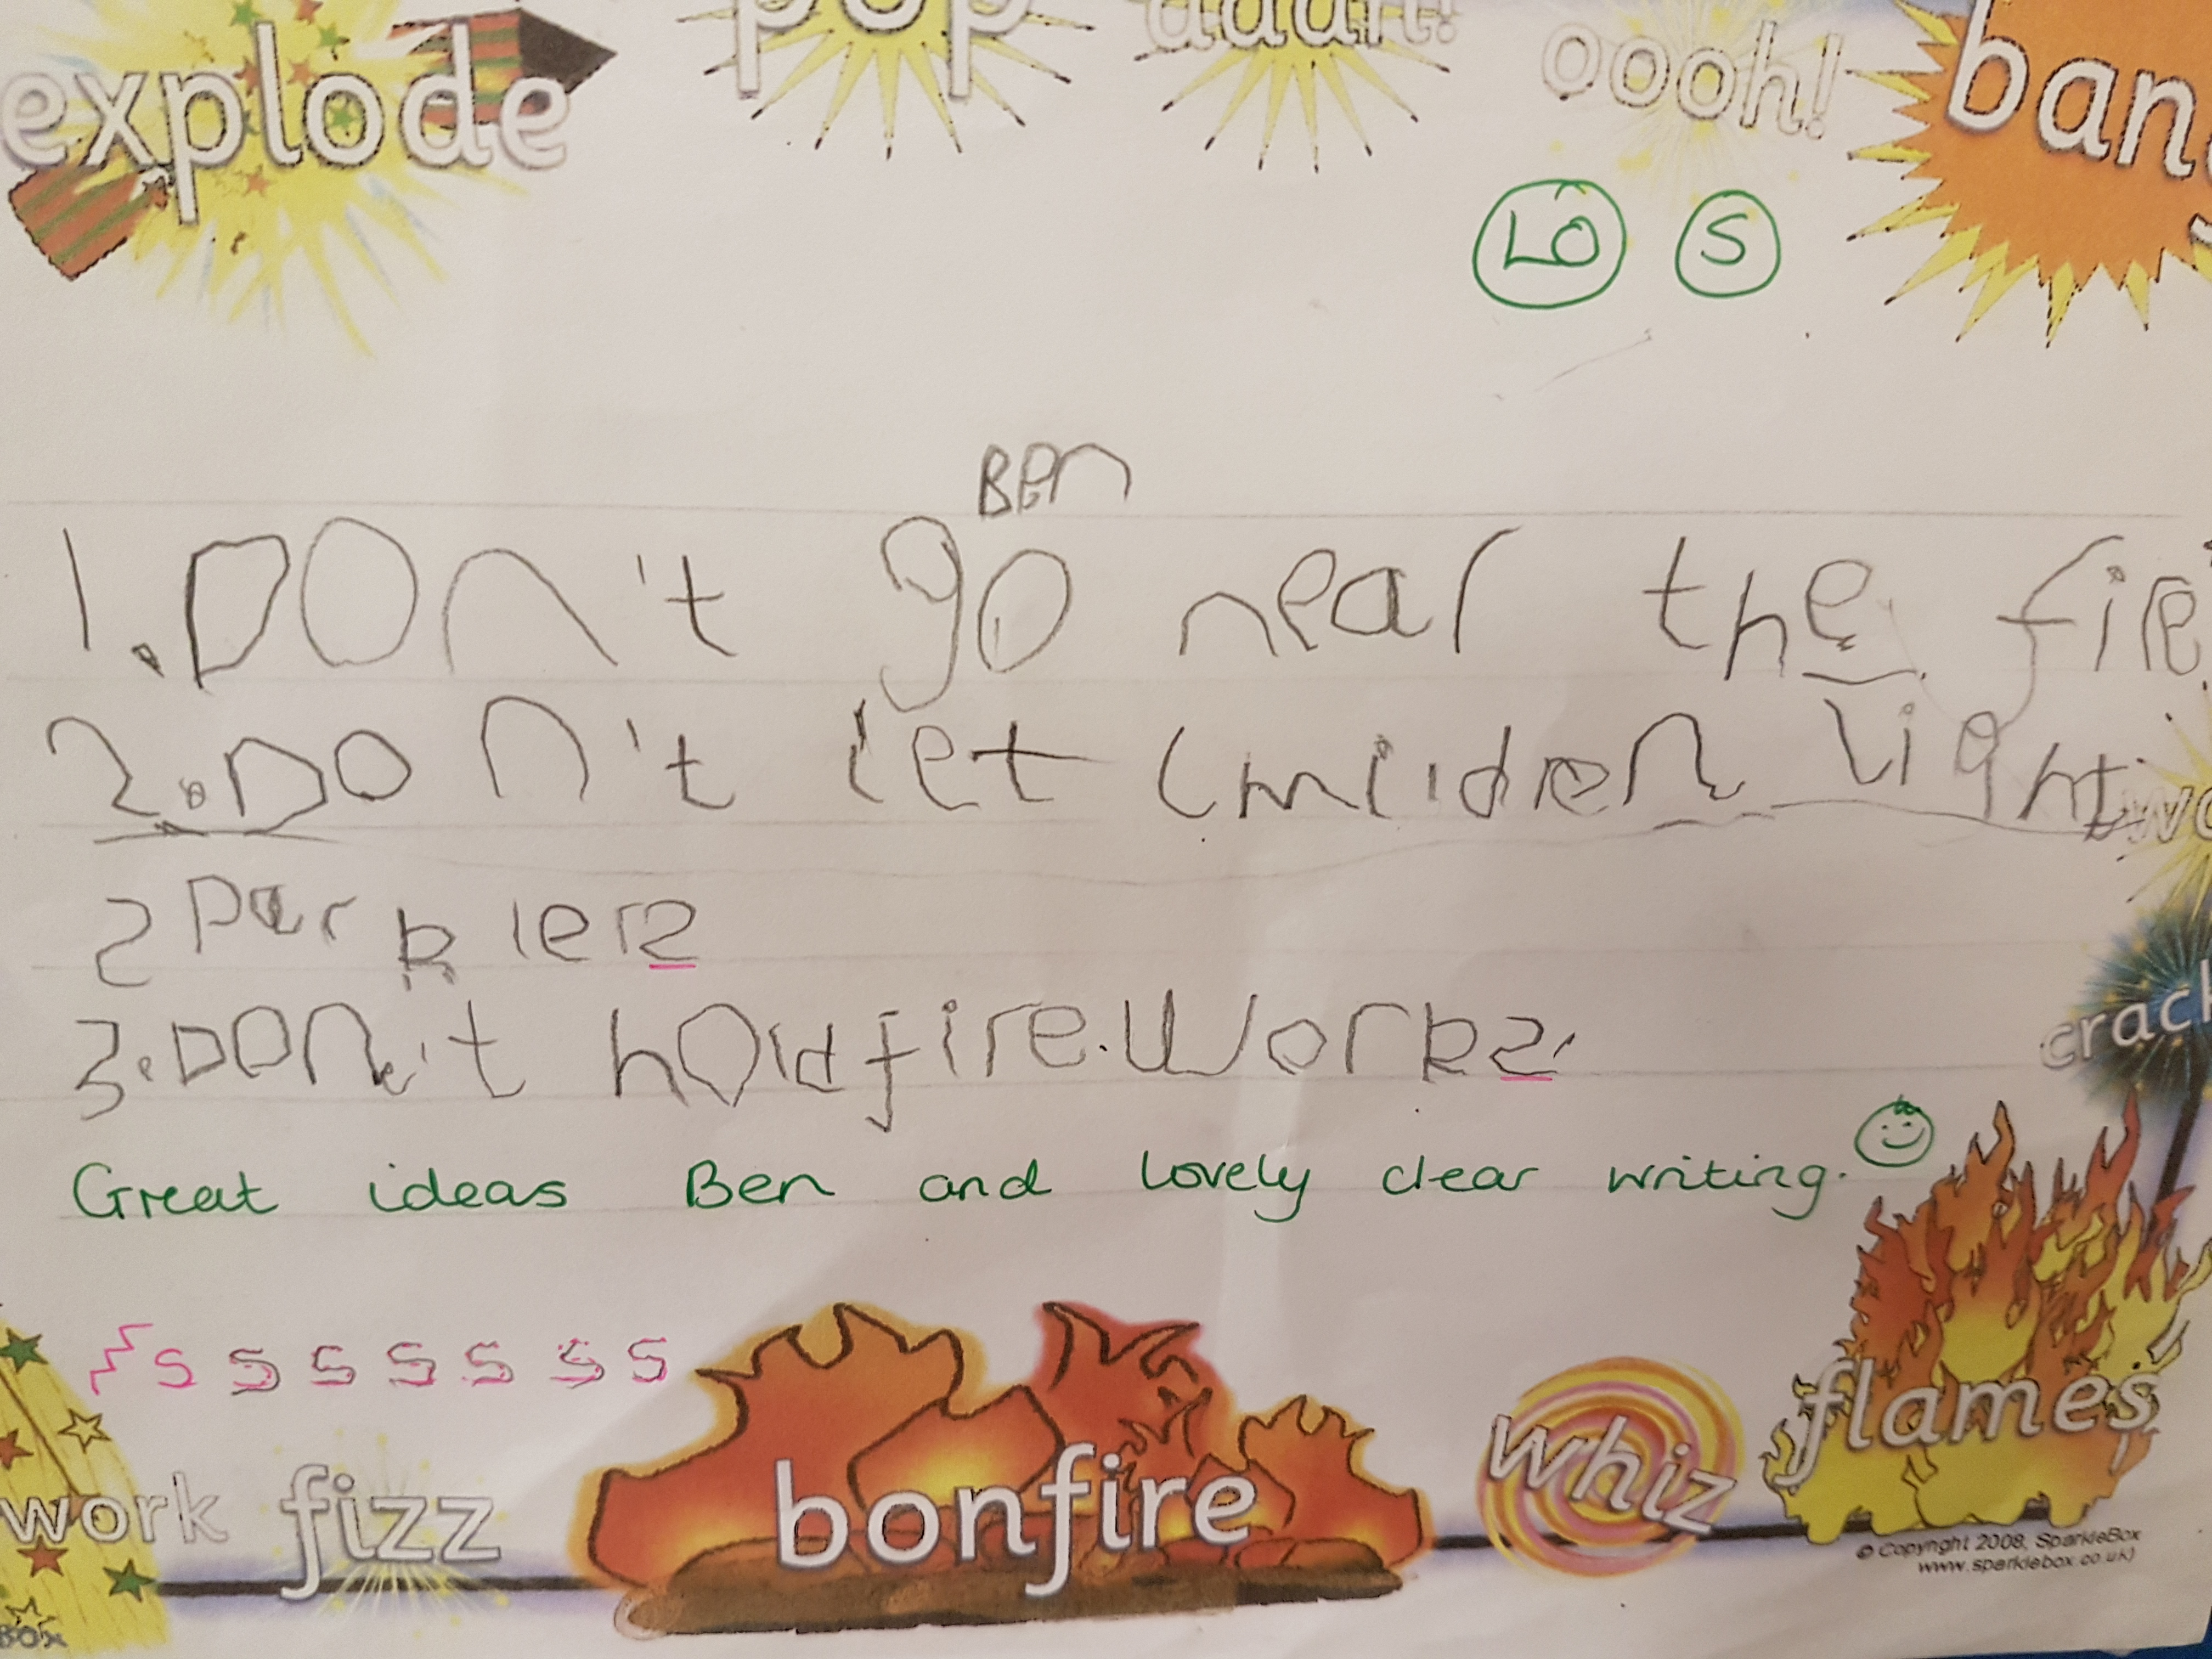 explode pop aaah! oooh! bang
LO S
Ben
1. Don't go near the fire.
2. Don't let children light
sparklers
crack
3. Don't hold fire.works.
Great ideas Ben and lovely clear writing.
s s s s s s s
flames
whiz
work fizz bonfire
© Copyright 2008, SparkleBox
www.sparklebox.co.uk)